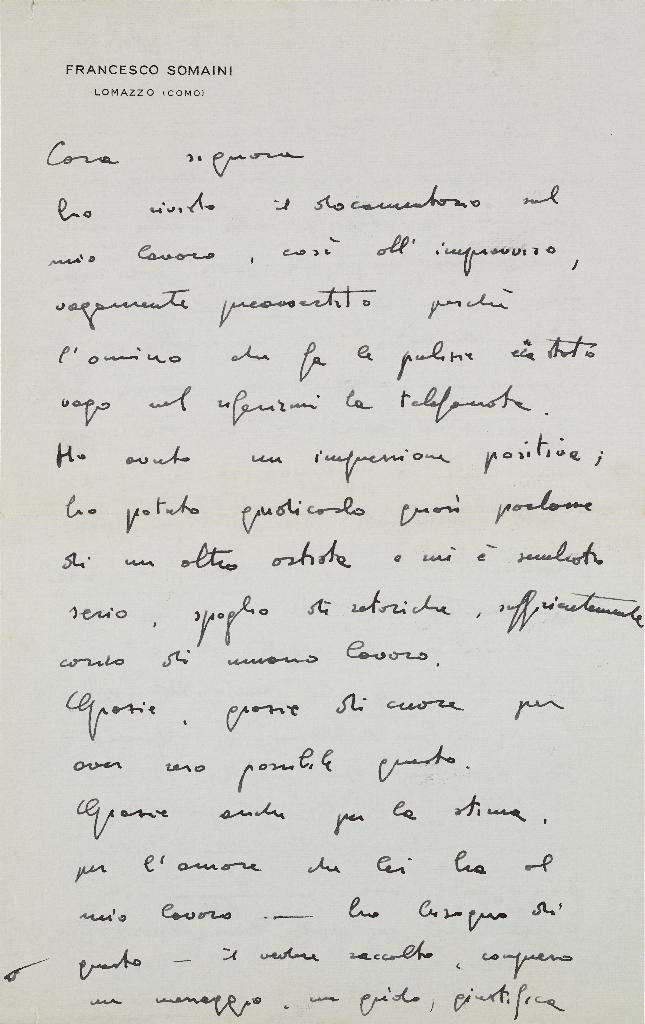 FRANCESCO SOMAINI
LOMAZZO (COMO)
Cara signora
ho rivisto il documentario sul
mio lavoro, così all'improvviso,
vagamente preavvertito perchè
l'omino che fa le pulizie è stato
vago nel riferirmi la telefonata.
Ho avuto un impressione positiva;
ho potuto giudicarlo quasi parlasse
di un altro artista e mi è sembrato
serio, spoglio di retoriche, sufficientemente
caldo di umano lavoro.
Grazie, grazie di cuore per
aver reso possibile questo.
Grazie anche per la stima,
per l'amore che lei ha al
mio lavoro — ho bisogno di
questo — il vedere raccolto, compreso
un messaggio, un grido, giustifica